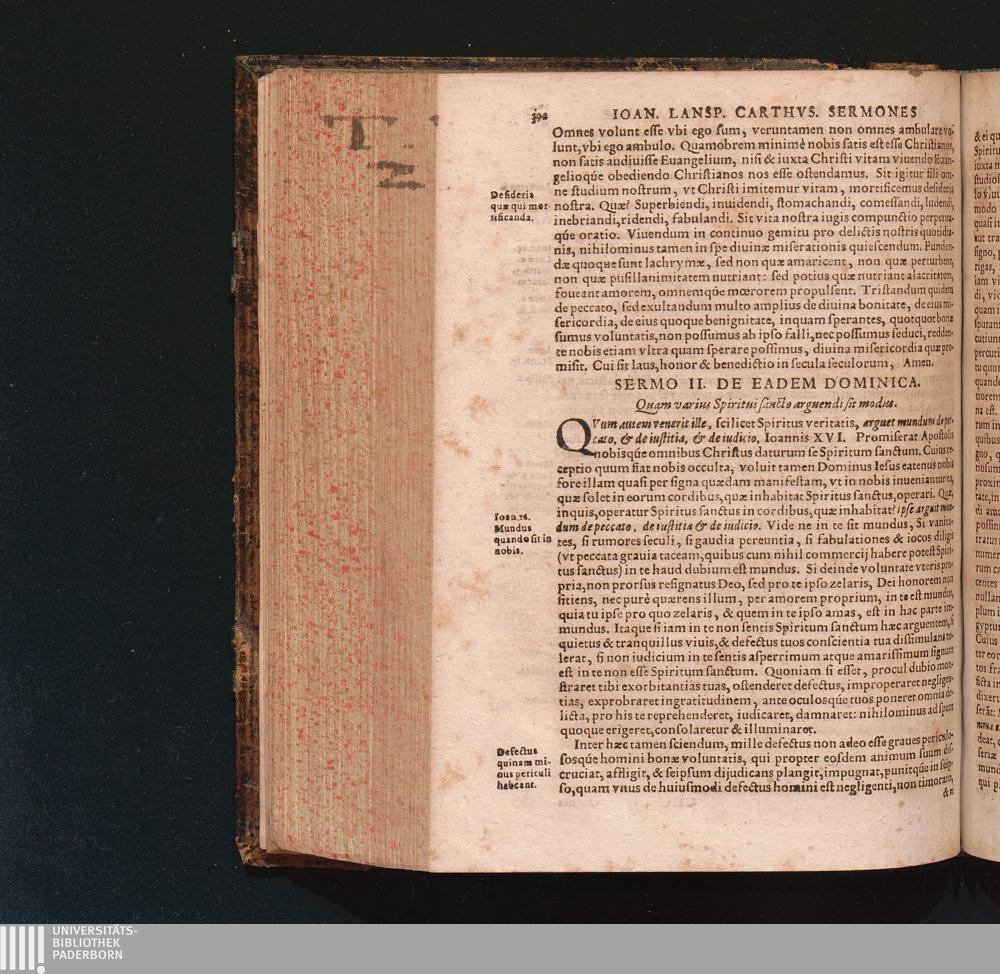 T
N.
392
IOAN. LANSP. CARTHVS. SERMONES
Omnes volunt esse vbi ego sum, veruntamen non omnes ambulare vo-
lunt, vbi ego ambulo. Quamobrem minimè nobis satis est esse Christianos,
non satis audiuisse Euangelium, nisi & iuxta Christi vitam viuendo Euan-
gelioq́ue obediendo Christianos nos esse ostendamus. Sit igitur fili om-
ne studium nostrum, vt Christi imitemur vitam, mortificemus desideria
nostra. Quæ? Superbiendi, inuidendi, stomachandi, comessandi, ludendi,
inebriandi, ridendi, fabulandi. Sit vita nostra iugis compunctio perpetua-
q́ue oratio. Viuendum in continuo gemitu pro delictis nostris quotidia-
nis, nihilominus tamen in spe diuinæ miserationis quiescendum. Funden-
dæ quoque sunt lachrymæ, sed non quæ amaricent, non quæ perturbent,
non quæ pusillanimitatem nutriant: sed potius quæ nutriant alacritatem,
foueant amorem, omnemq́ue mœrorem propulsent. Tristandum quidem
de peccato, sed exultandum multo amplius de diuina bonitate, de eius mi-
sericordia, de eius quoque benignitate, inquam sperantes, quotquot bonæ
sumus voluntatis, non possumus ab ipso falli, nec possumus seduci, redden-
te nobis etiam vltra quam sperare possimus, diuina misericordia quæ pro-
misit. Cui sit laus, honor & benedictio in secula seculorum, Amen.
Desideria
quæ qui mor-
tificanda.
SERMO II. DE EADEM DOMINICA.
Quam varius Spiritui sancto arguendi sit modus.
QVum autem venerit ille, scilicet Spiritus veritatis, arguet mundum de pec-
cato, & de iustitia, & de iudicio, Ioannis XVI. Promiserat Apostolis
nobisq́ue omnibus Christus daturum se Spiritum sanctum. Cuius re-
ceptio quum fiat nobis occulta, voluit tamen Dominus Iesus eatenus nobis
fore illam quasi per signa quædam manifestam, vt in nobis inueniantur ea,
quæ solet in eorum cordibus, quæ inhabitat Spiritus sanctus, operari. Quæ,
inquis, operatur Spiritus sanctus in cordibus, quæ inhabitat? Ipse arguit mun-
dum de peccato, de iustitia & de iudicio. Vide ne in te sit mundus, Si vanita-
tes, si rumores seculi, si gaudia pereuntia, si fabulationes & iocos diligis
(vt peccata grauia taceam, quibus cum nihil commercij habere potest Spiri-
tus sanctus) in te haud dubium est mundus. Si deinde voluntate vteris pro-
pria, non prorsus resignatus Deo, sed pro te ipso zelaris, Dei honorem non
sitiens, nec purè quærens illum, per amorem proprium, in te est mundus,
quia tu ipse pro quo zelaris, & quem in te ipso amas, est in hac parte im-
mundus. Itaque si iam in te non sentis Spiritum sanctum hæc arguentem, si
quietus & tranquillus viuis, & defectus tuos conscientia tua dissimulans to-
lerat, si non iudicium in te sentis asperrimum atque amarissimum signum
est in te non esse Spiritum sanctum. Quoniam si esset, procul dubio mon-
straret tibi exorbitantias tuas, ostenderet defectus, improperaret negligen-
tias, exprobraret ingratitudinem, ante oculosq́ue tuos poneret omnia de-
licta, pro his te reprehenderet, iudicaret, damnaret: nihilominus ad spem
quoque erigeret, consolaretur & illuminaret.
Ioan.16.
Mundus
quando sit in
nobis.
Inter hæc tamen sciendum, mille defectus non adeo esse graues periculo-
sosq́ue homini bonæ voluntatis, qui propter eosdem animum suum dis-
cruciat, affligit, & seipsum dijudicans plangit, impugnat, punitq́ue in seip-
so, quam vnus de huiusmodi defectus homini est negligenti, non timorato,
Defectus
quinam mi-
nus periculi
habeant.
UNIVERSITÄTS-
BIBLIOTHEK
PADERBORN